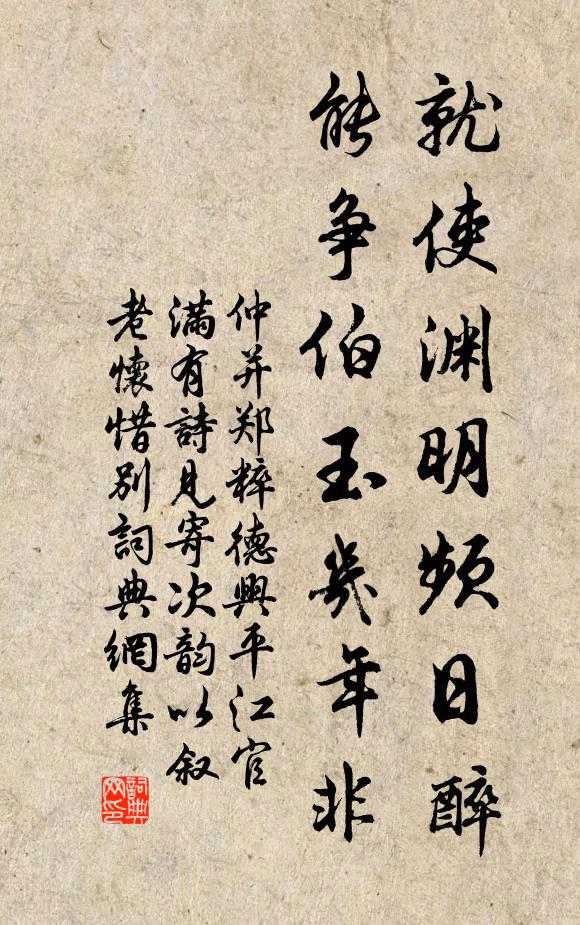 就使渊明頻日醉
能争伯玉幾年非
仲并郑粹德興平江官
满有詩見寄次韵以叙
老懷惜别詞典網集
詞典网印